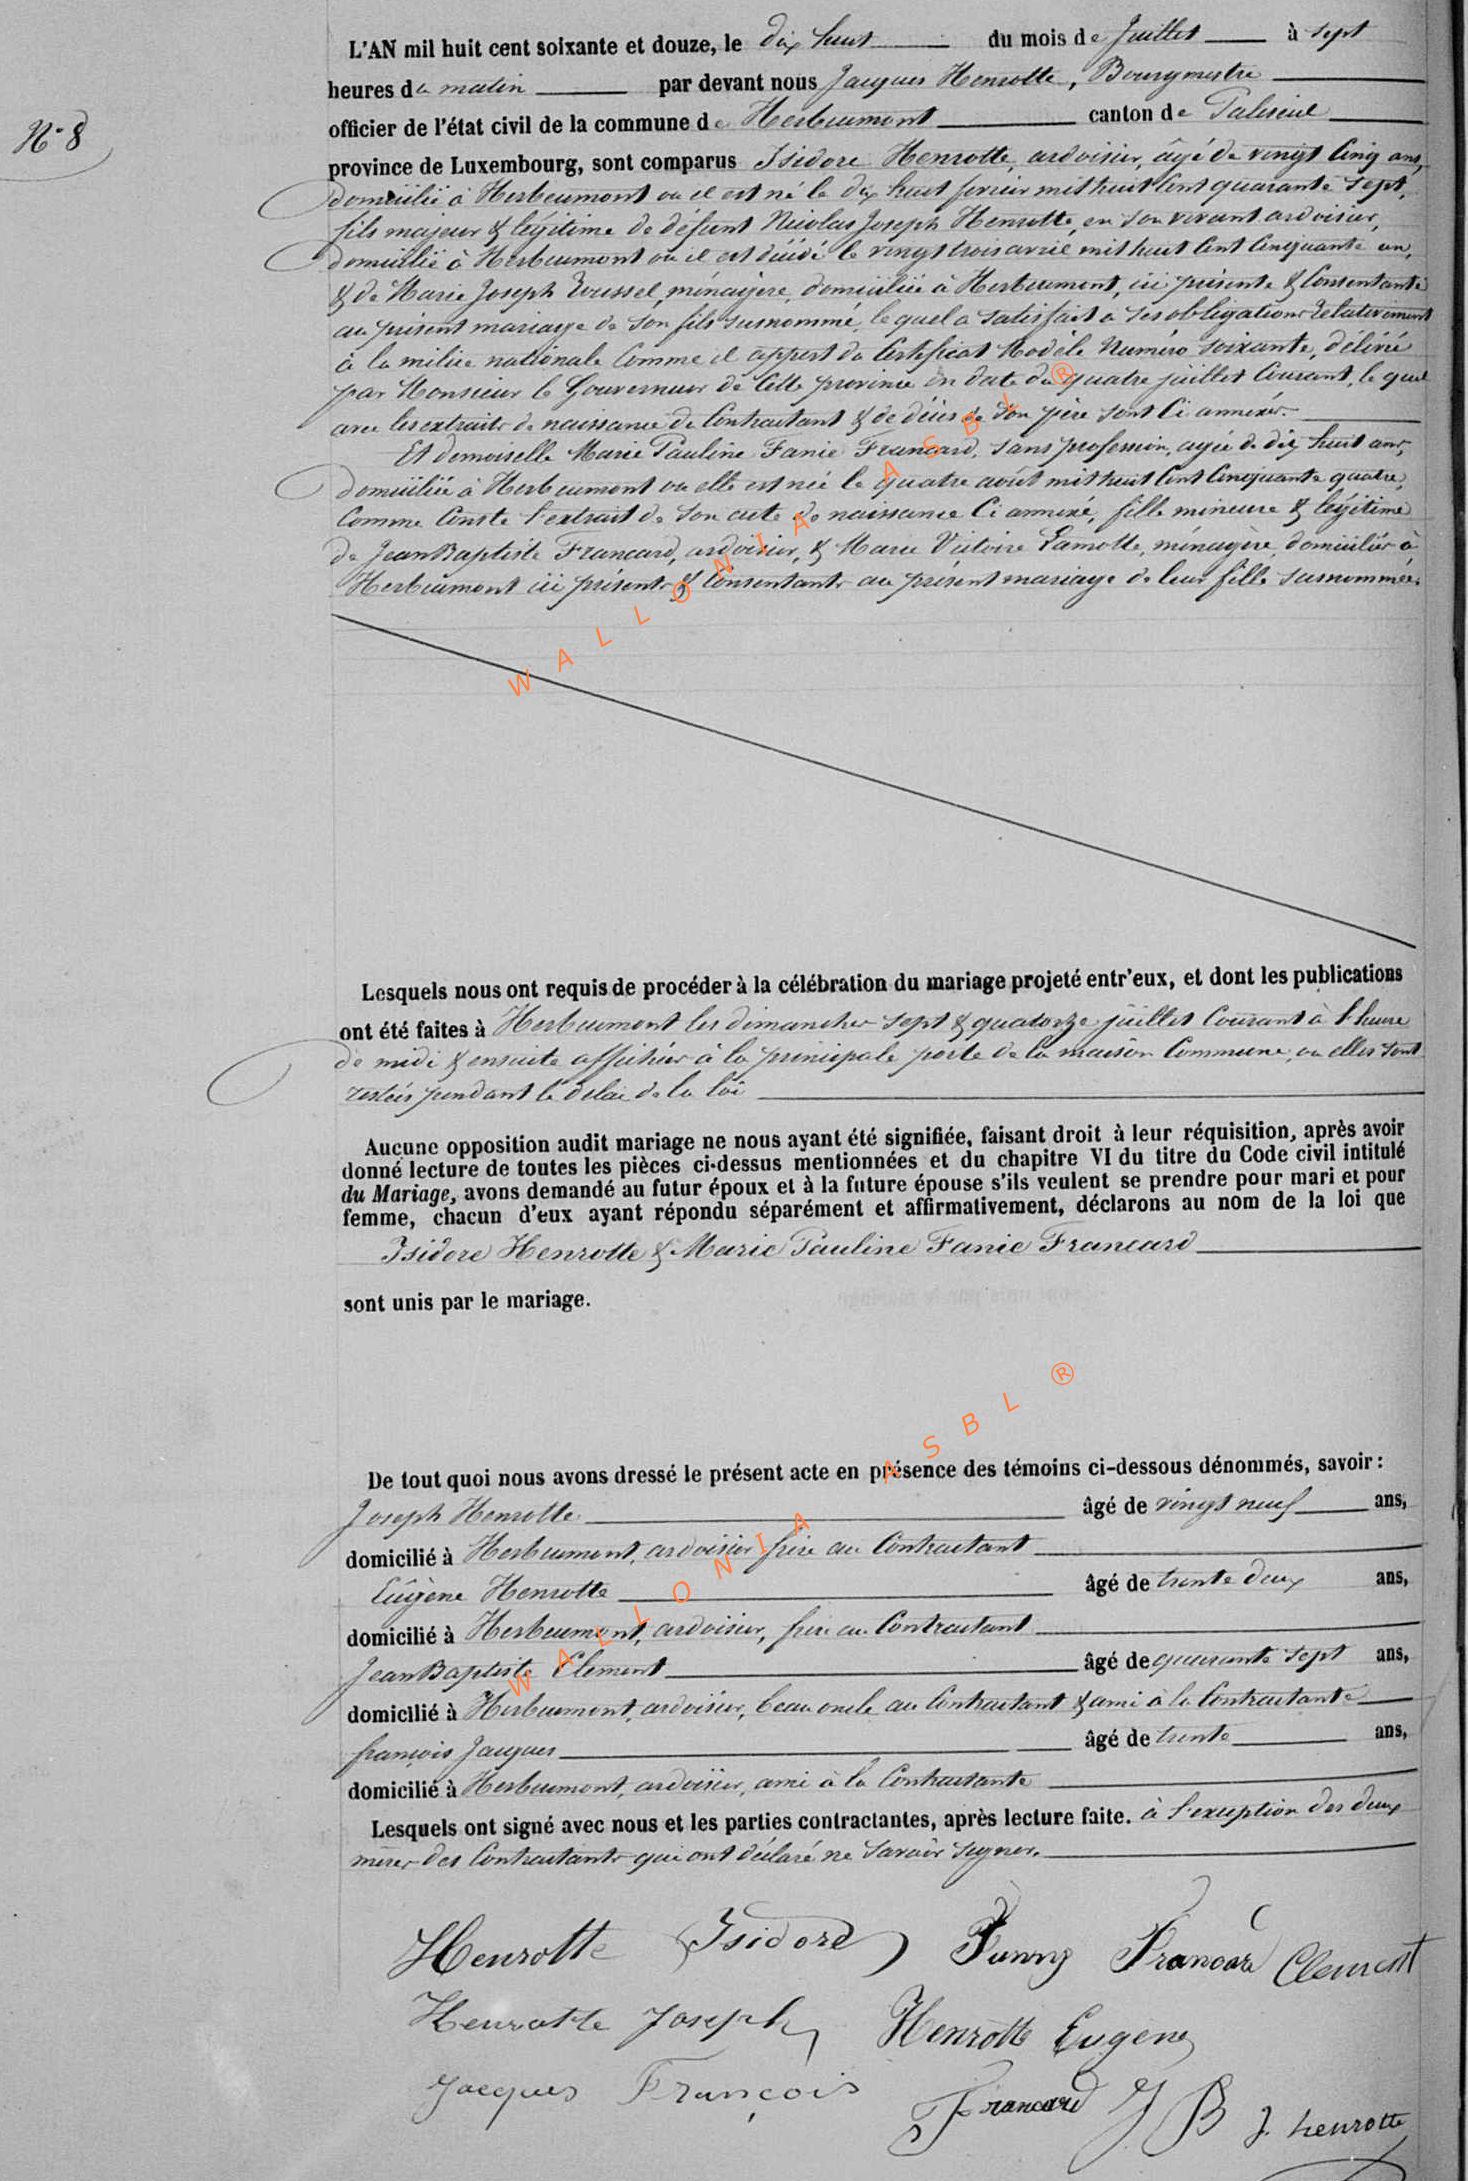 L'AN mil huit cent soixante et douze, le dix huit du mois de Juillet à sept
heures du matin par devant nous Jacques Henrotte, Bourgmestre
N° 8
officier de l'état civil de la commune de Herbeumont canton de Paliseul
province de Luxembourg, sont comparus Isidore Henrotte, ardoisier, âgé de vingt cinq ans,
domicilié à Herbeumont où il est né le dix huit février mil huit cent quarante sept,
fils majeur & légitime de défunt Nicolas Joseph Henrotte, en son vivant ardoisier,
domicilié à Herbeumont où il est décédé le vingt trois avril mil huit cent cinquante un,
& de Marie Joseph Roussel, ménagère, domiciliée à Herbeumont, ici présente & consentante
au présent mariage de son fils susnommé, lequel a satisfait à ses obligations relativement
à la milice nationale comme il appert du certificat Modèle Numéro soixante, délivré
par Monsieur le Gouverneur de cette province en date du quatre juillet courant, le quel
avec les extraits de naissance du contractant & de décès de son père sont ci annexés.
Et demoiselle Marie Pauline Fanie Francard, sans profession, agée de dix huit ans,
domiciliée à Herbeumont où elle est née le quatre août mil huit cent cinquante quatre,
comme conste l'extrait de son acte de naissance ci annexé, fille mineure & légitime
de Jean Baptiste Francard, ardoisier, & Marie Victoire Lamotte, ménagère, domiciliés à
Herbeumont ici présents & consentants au présent mariage de leur fille susnommée.
WALLONIA ASBL ®
Lesquels nous ont requis de procéder à la célébration du mariage projeté entr'eux, et dont les publications
ont été faites à Herbeumont les dimanches sept & quatorze juillet courant à l'heure
de midi & ensuite affichées à la principale porte de la maison commune, où elles sont
restées pendant le délai de la loi
Aucune opposition audit mariage ne nous ayant été signifiée, faisant droit à leur réquisition, après avoir
donné lecture de toutes les pièces ci-dessus mentionnées et du chapitre VI du titre du Code civil intitulé
du Mariage, avons demandé au futur époux et à la future épouse s'ils veulent se prendre pour mari et pour
femme, chacun d'eux ayant répondu séparément et affirmativement, déclarons au nom de la loi que
Isidore Henrotte & Marie Pauline Fanie Francard
sont unis par le mariage.
WALLONIA ASBL ®
De tout quoi nous avons dressé le présent acte en présence des témoins ci-dessous dénommés, savoir :
Joseph Henrotte âgé de vingt neuf ans,
domicilié à Herbeumont, ardoisier frère au contractant
Eugène Henrotte âgé de trente deux ans,
domicilié à Herbeumont, ardoisier, frère au contractant
Jean Baptiste Clement âgé de quarante sept ans,
domicilié à Herbeumont, ardoisier, beau oncle au contractant & ami à la contractante
françois Jacques âgé de trente ans,
domicilié à Herbeumont, ardoisier, ami à la contractante
Lesquels ont signé avec nous et les parties contractantes, après lecture faite. à l'exception des deux
mères des contractants qui ont déclaré ne savoir signer.
Henrotte Isidore Fanny Francard Clement
Henrotte Joseph Henrotte Eugene
Jacques François Francard J B J. henrotte